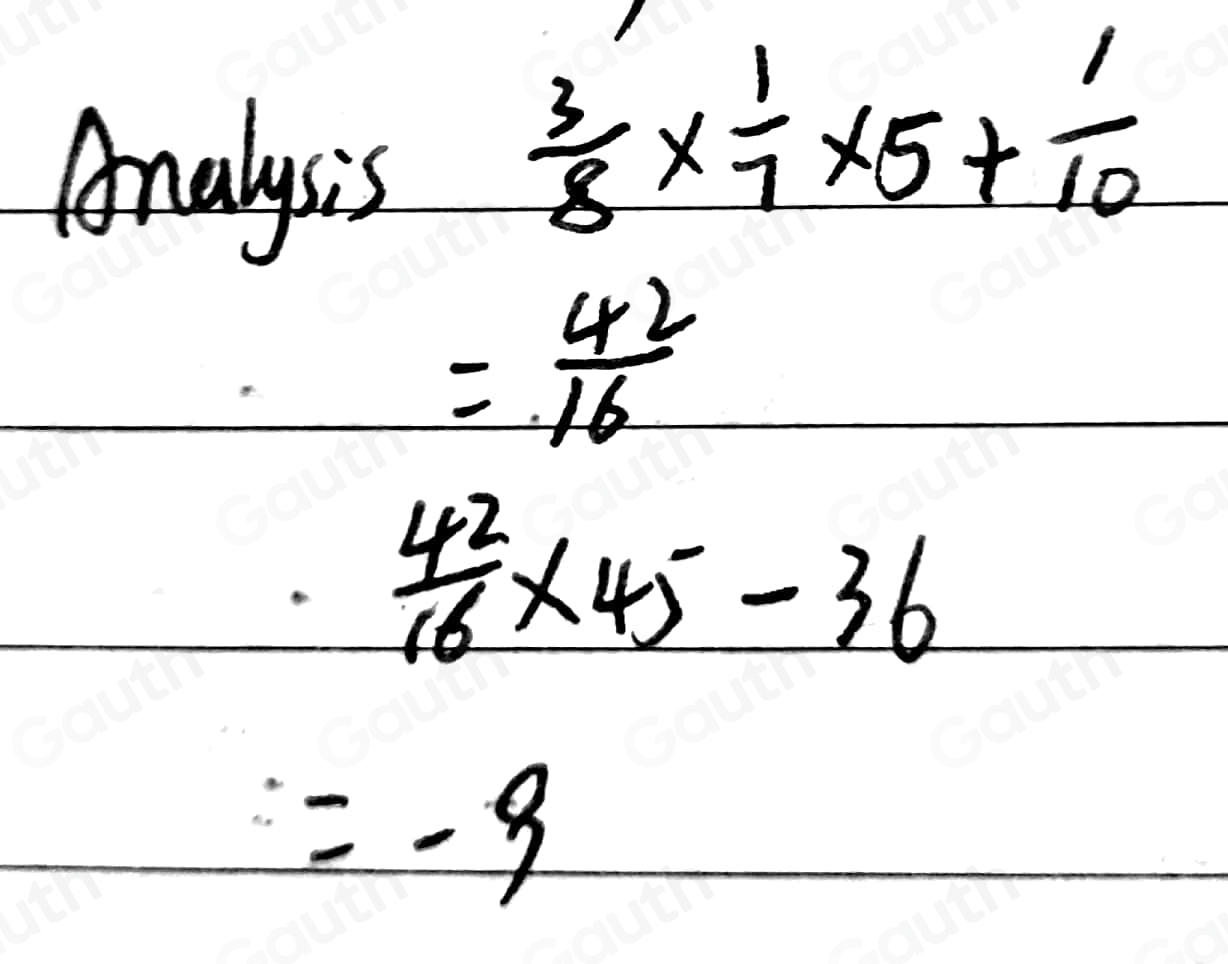 Analysis 3/8 × 1/7 × 5 + 1/10
= 42/16
42/16 × 45 - 36
= - 9